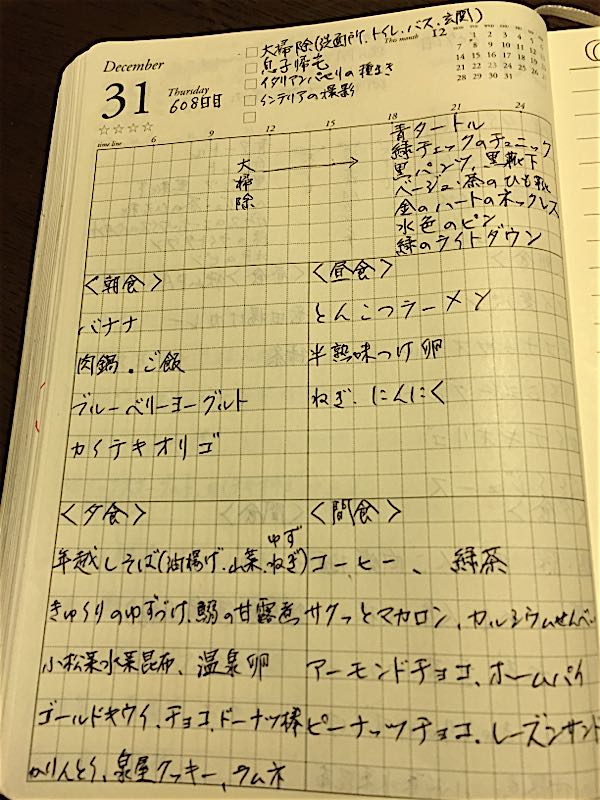 大掃除(洗面所、トイレ、バス、玄関)
This month 12
December
息子帰宅
イタリアンパセリの種まき
31 Thursday
608日目
インテリアの撮影
☆☆☆☆
time line 6 9 12 15 18 21 24
大掃除
青タートル
緑チェックのチュニック
黒パンツ、黒靴下
ベージュ・茶のひも靴
金のハートのネックレス
水色のピン
緑のライトダウン
<朝食>
バナナ
肉鍋。ご飯
ブルーベリーヨーグルト
カイテキオリゴ
<昼食>
とんこつラーメン
半熟味つけ卵
ねぎ、にんにく
<夕食>
年越しそば(油揚げ、山菜、ねぎ)
ゆず
きゅうりのゆずづけ、鰯の甘露煮
小松菜水菜昆布、温泉卵
ゴールドキウイ、チョコ、ドーナツ棒
かりんとう、泉屋クッキー、ラムネ
<間食>
コーヒー、緑茶
サクっとマカロン、カルシウムせんべい
アーモンドチョコ、ホームパイ
ピーナッツチョコ、レーズンサンド